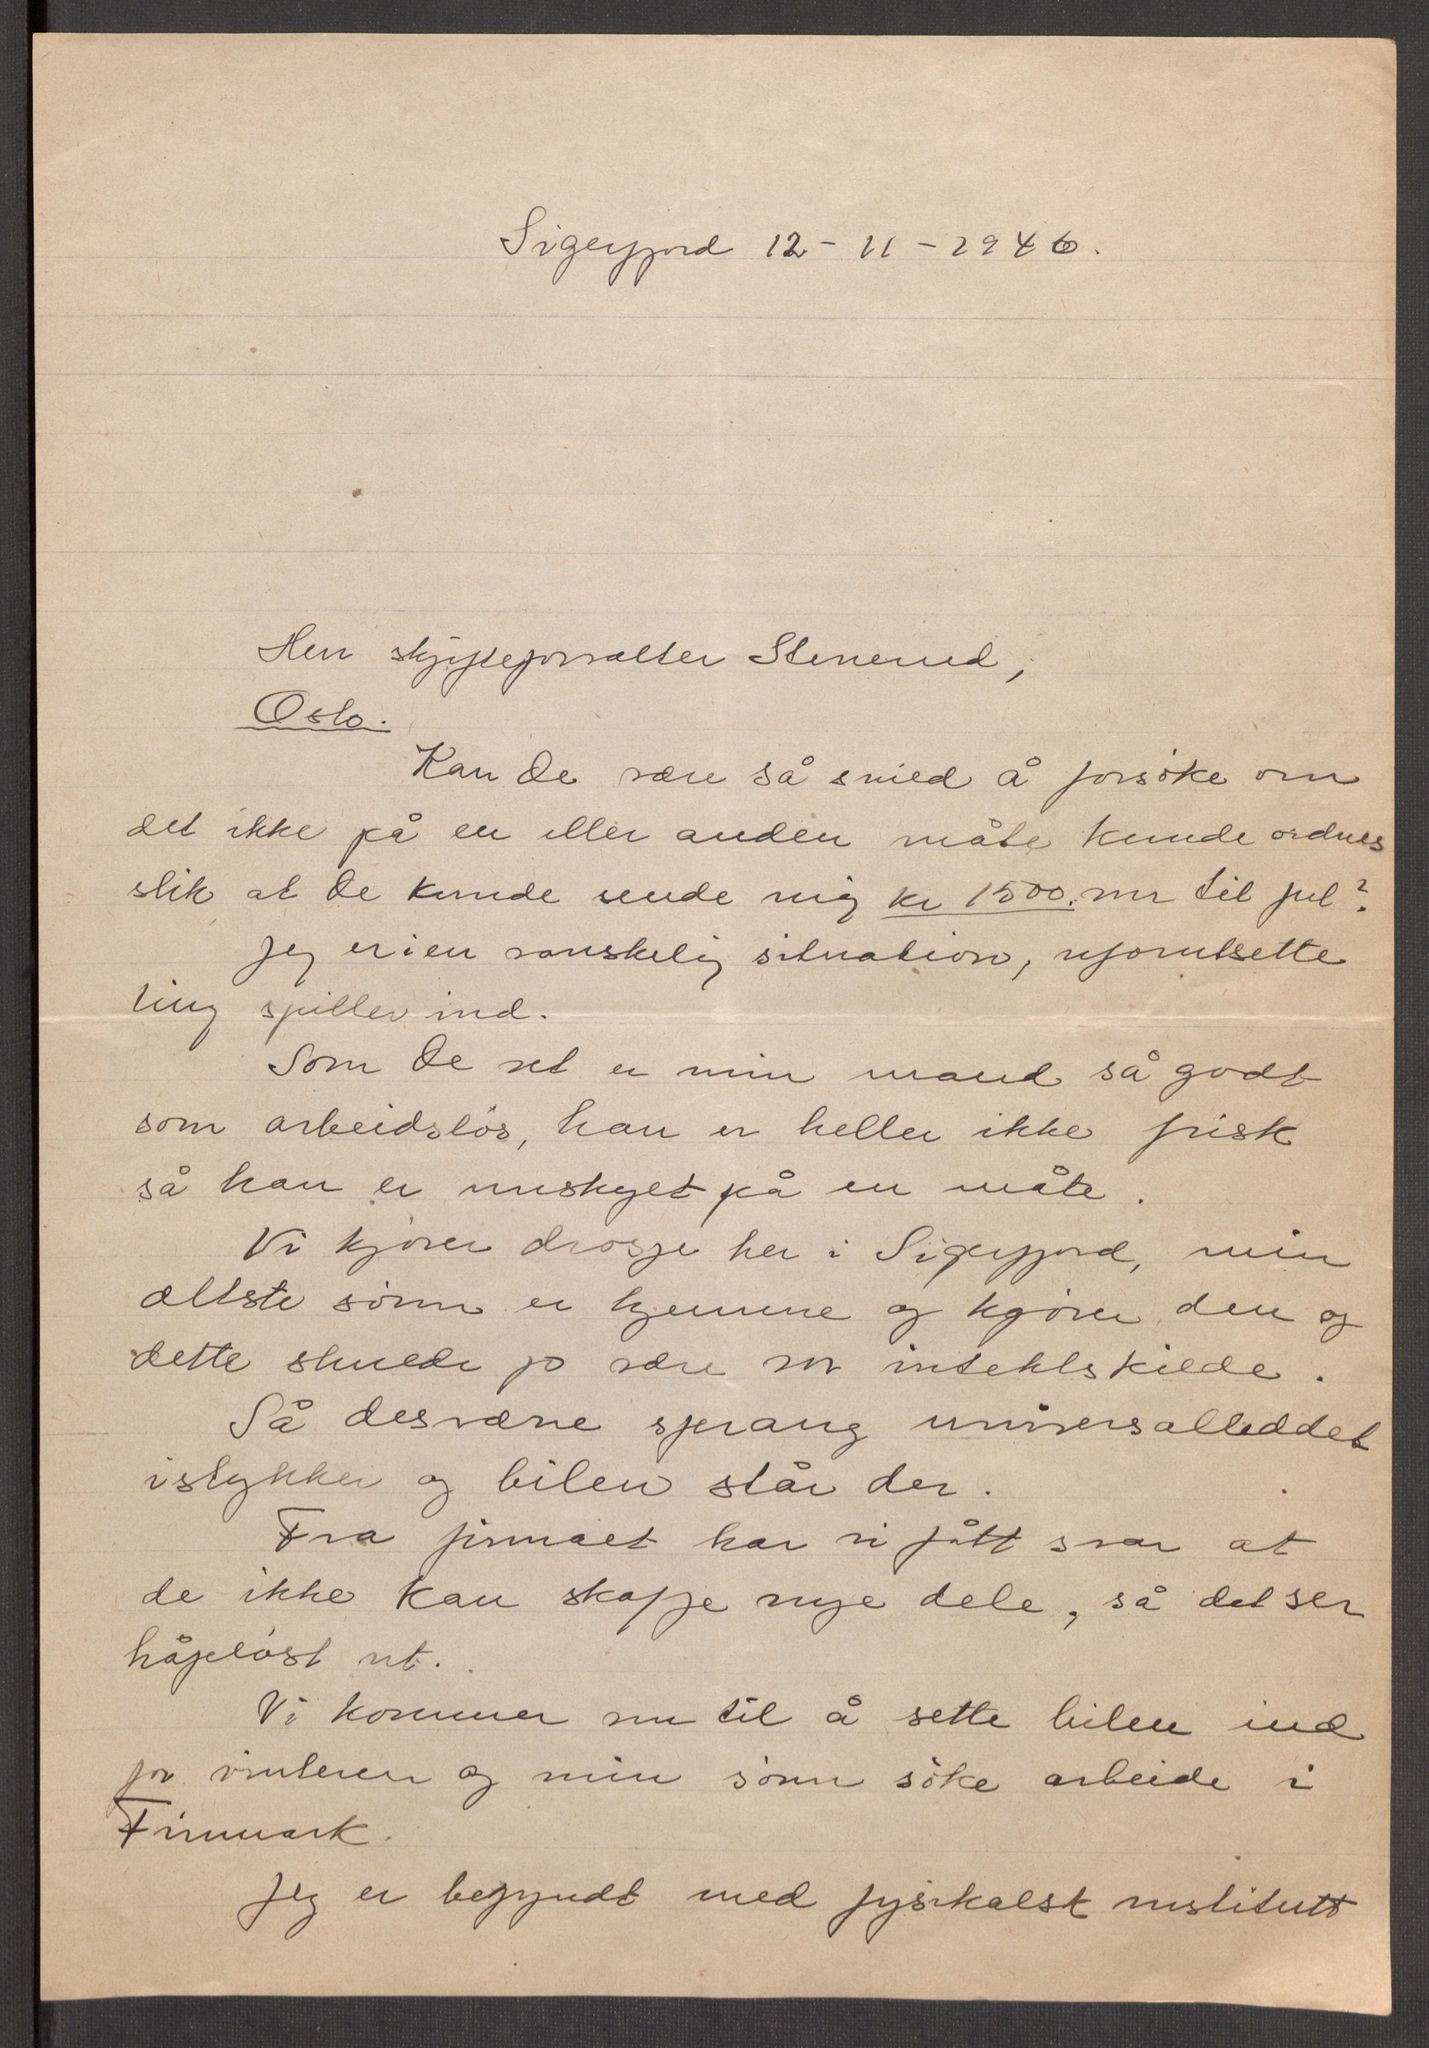 Sigerfjord 12 - 11 - 1946.
Herr skifteforvalter Stenerud,
Oslo.
Kan De være så snild å forsöke om
det ikke på en eller anden måte kunde ordnes
slik at De kunde sende mig kr 1500. nu til jul?
Jeg er i en vanskelig situation, uforutsette
ting spiller ind.
Som De vet er min mand så godt
som arbeidslös, han er heller ikke frisk
så han er unskyct på en måte.
Vi kjörer drosje her i Sigerfjord, min
ældste sönn er hjemme og kjörer den og
dette skulde jo være vor intektskilde.
Så desværre sprang universalleddet
istykker og bilen står der.
Fra firmaet har vi fått svar at
de ikke kan skaffe nye dele, så det ser
håpelöst ut.
Vi kommer nu til å sette bilen ind
for vinteren og min sönn söke arbeide i
Finmark.
Jeg er begyndt med fysikalsk institutt